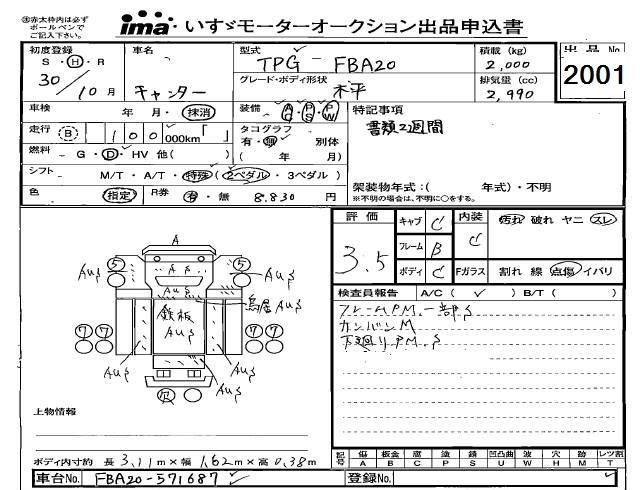 ㊟赤太枠内は必ず
ボールペンで
ご記入下さい。
ima いすゞモーターオークション出品申込書
初度登録
S・H・R
30/10月
車名
キャンター
型式
TPG-FBA20
グレード・ボディ形状
木平
積載 (kg)
2,000
排気量 (cc)
2,990
出品No
2001
車検 年 月・抹消
装備 AC PS PW
特記事項
書類2週間
走行 B 100 000km「 」
タコグラフ
有・無 別体
( 年 月)
燃料 - G・D・HV 他( )
シフト M/T・A/T・特殊(2ペダル・3ペダル)
色 指定 R券 有・無 8,830 円
架装物年式:( 年式)・不明
※不明の場合は、不明に○をする。
評価
3.5
キャブ C
フレーム B
ボディ C
内装 C
汚れ 破れ ヤニ スレ
Fガラス 割れ 線 点傷 イバリ
検査員報告 A/C(✓) B/T( )
フレームPM.一部S
カンバンM
下廻りPM.S
A
5 5
AUS AUS AUS
鳥居
AUS
鉄板
AUS
7 7 7 7
AUS AUS
AUS
欠
上物情報
ボディ内寸約 長3.11m×幅1.62m×高0.38m
記号 傷A 板金B 腐C 塗P 錆S 凹凸曲U 波W 穴H 跡M レツ割T
車台No. FBA20-571687
登録No.